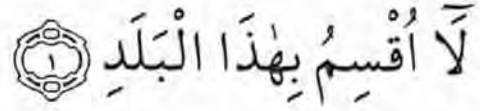 لَآ اُقْسِمُ بِهٰذَا الْبَلَدِ ۝١